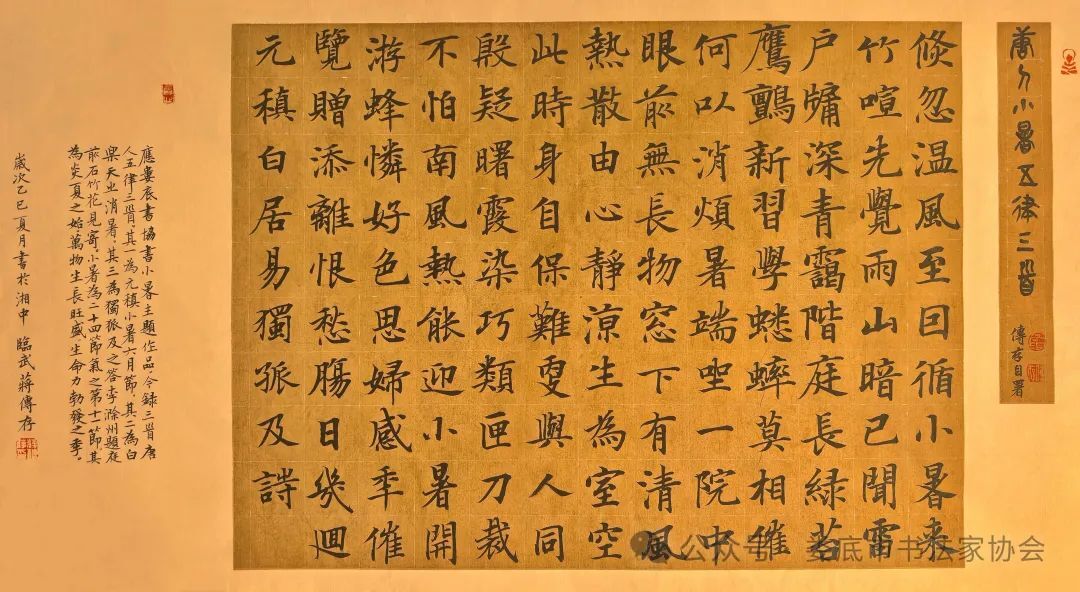 唐人小暑五律三首
傳存自署
倏忽温風至囙循小暑来
竹喧先覺雨山暗已聞雷
户牖深青靄階庭長緑苔
鷹鸇新習學蟋蟀莫相催
何以消煩暑端坐一院中
眼前無長物窓下有清風
熱散由心靜涼生為室空
此時身自保難更與人同
殷疑曙霞染巧類匣刀裁
不怕南風熱能迎小暑開
游蜂憐好色思婦感年催
覽贈添離恨愁腸日幾迴
元稹白居易獨孤及詩
應婁底書協書小暑主題作品,今録三首唐
人五律三首,其一為元稹小暑六月節,其二為白
樂天之消暑,其三為獨孤及之答李滁州題庭
前石竹花見寄。小暑為二十四節氣之第十一節,其
為炎夏之始,萬物生長旺盛,生命力勃發之季。
歲次乙巳夏月書於湘中 臨武蔣傳存
公众号 · 娄底市书法家协会